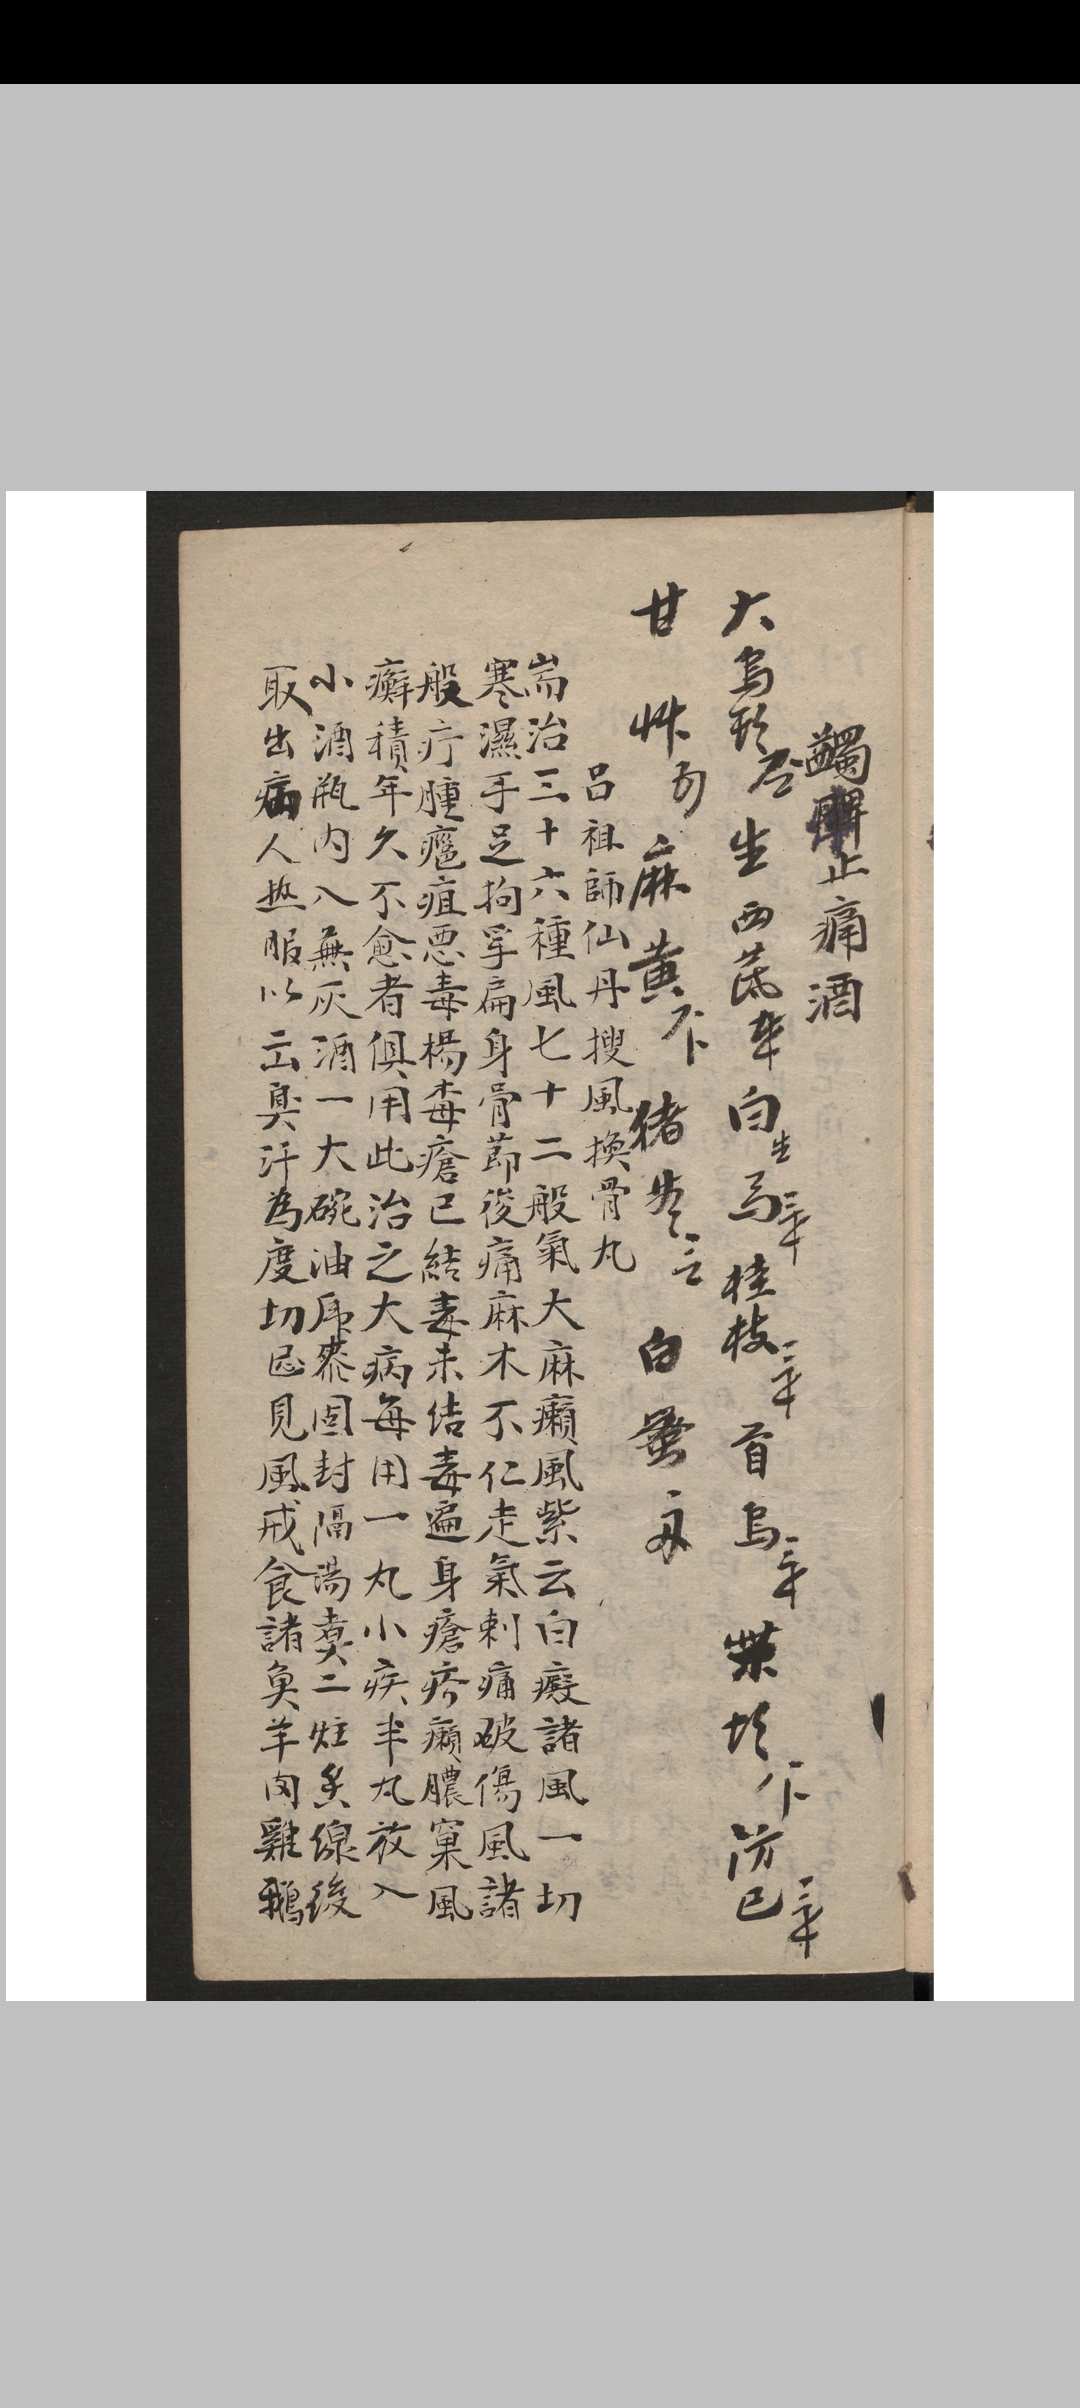 止痛酒
大烏 生西芪 白生馬 桂枝 首烏 柴 防已
甘艸 麻黃 猪苓 白蚤
呂祖師仙丹搜風換骨丸
耑治三十六種風七十二般氣大麻癩風紫云白癜諸風一切
寒濕手足拘孿扁身骨節疼痛麻木不仁走氣刺痛破傷風諸
般疔腫疽惡毒楊毒瘡已結毒未結毒遍身瘡疥癩膿窠風
癬積年久不愈者俱用此治之大病每用一丸小疾半丸放入
小酒瓶內入無灰酒一大碗油紙固封隔湯煑二炷香線後
取出病人热服以出臭汗為度切忌見風戒食諸魚羊肉雞鵝